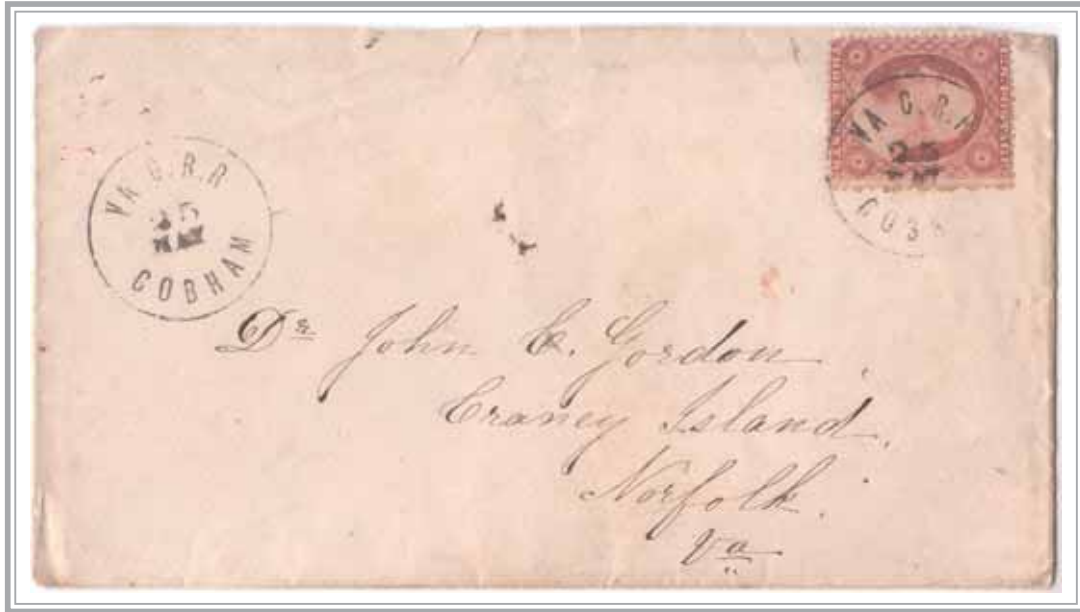 VA C.R.R
25
MAY
COBHAM
VA C.R.R
25
MAY
Dr John C. Gordon
Craney Island.
Norfolk.
Va